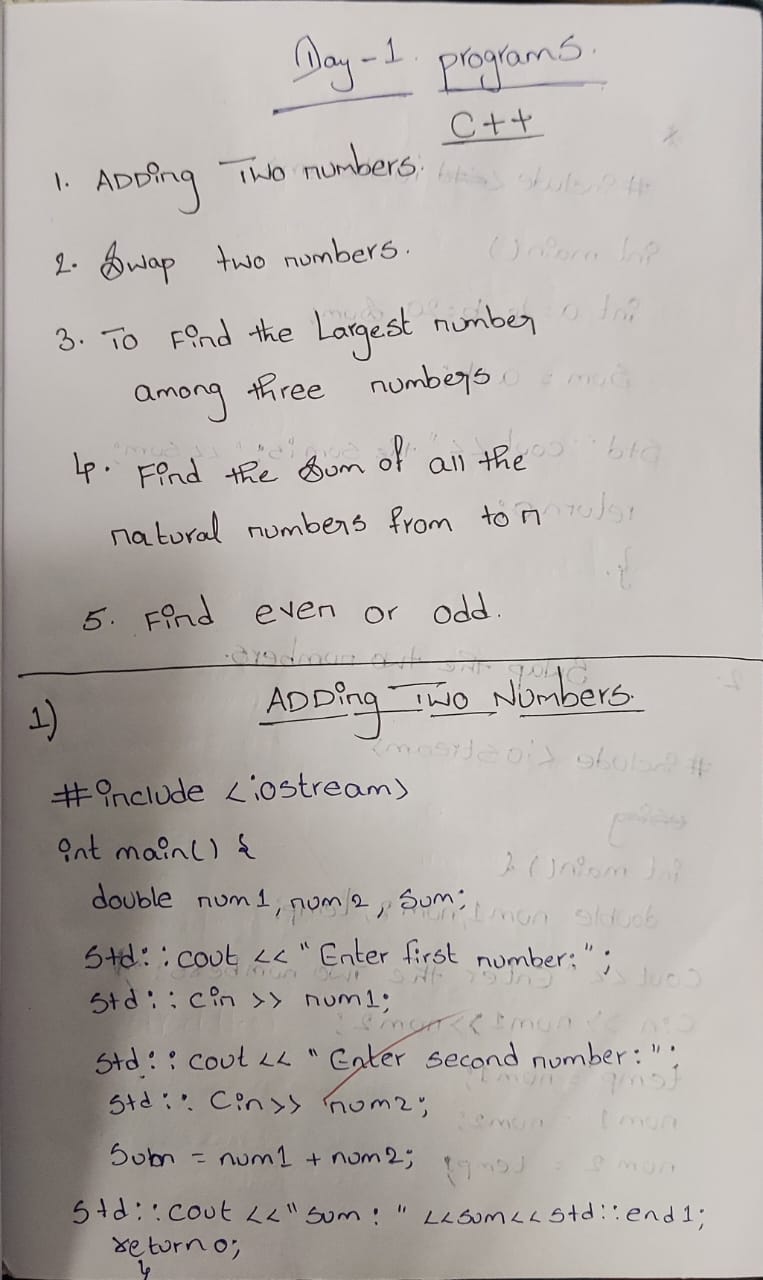 Day-1 programs.
C++
1. ADDing Two numbers.
2. Swap two numbers.
3. To Find the Largest number
among three numbers
4. Find the Sum of all the
natural numbers from to n
5. Find even or odd.
1) ADDing Two Numbers.
#include <iostream>
int main() {
double num1, num2, Sum;
Std::cout << "Enter first number:";
Std::cin >> num1;
Std::cout << "Enter second number:";
Std::Cin >> num2;
Sum = num1 + num2;
Std::cout << "sum:" << sum << std::end1;
return 0;
}